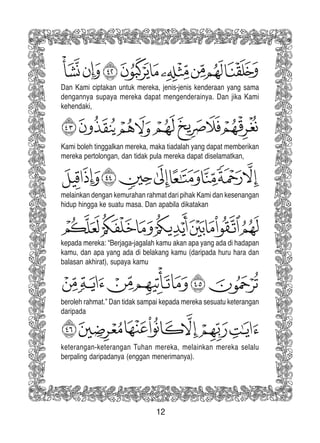 وَخَلَقْنَا لَهُم مِّن مِّثْلِهِۦ مَا يَرْكَبُونَ ٤٢ وَإِن نَّشَأْ
Dan Kami ciptakan untuk mereka, jenis-jenis kenderaan yang sama
dengannya supaya mereka dapat mengenderainya. Dan jika Kami
kehendaki,
نُغْرِقْهُمْ فَلَا صَرِيخَ لَهُمْ وَلَا هُمْ يُنقَذُونَ ٤٣
Kami boleh tinggalkan mereka, maka tiadalah yang dapat memberikan
mereka pertolongan, dan tidak pula mereka dapat diselamatkan,
إِلَّا رَحْمَةً مِّنَّا وَمَتَـٰعًا إِلَىٰ حِينٍ ٤٤ وَإِذَا قِيلَ
melainkan dengan kemurahan rahmat dari pihak Kami dan kesenangan
hidup hingga ke suatu masa. Dan apabila dikatakan
لَهُمُ ٱتَّقُوا۟ مَا بَيْنَ أَيْدِيكُمْ وَمَا خَلْفَكُمْ لَعَلَّكُمْ
kepada mereka: "Berjaga-jagalah kamu akan apa yang ada di hadapan
kamu, dan apa yang ada di belakang kamu (daripada huru hara dan
balasan akhirat), supaya kamu
تُرْحَمُونَ ٤٥ وَمَا تَأْتِيهِم مِّنْ ءَايَةٍ مِّنْ
beroleh rahmat." Dan tidak sampai kepada mereka sesuatu keterangan
daripada
ءَايَـٰتِ رَبِّهِمْ إِلَّا كَانُوا۟ عَنْهَا مُعْرِضِينَ ٤٦
keterangan-keterangan Tuhan mereka, melainkan mereka selalu
berpaling daripadanya (enggan menerimanya).
12